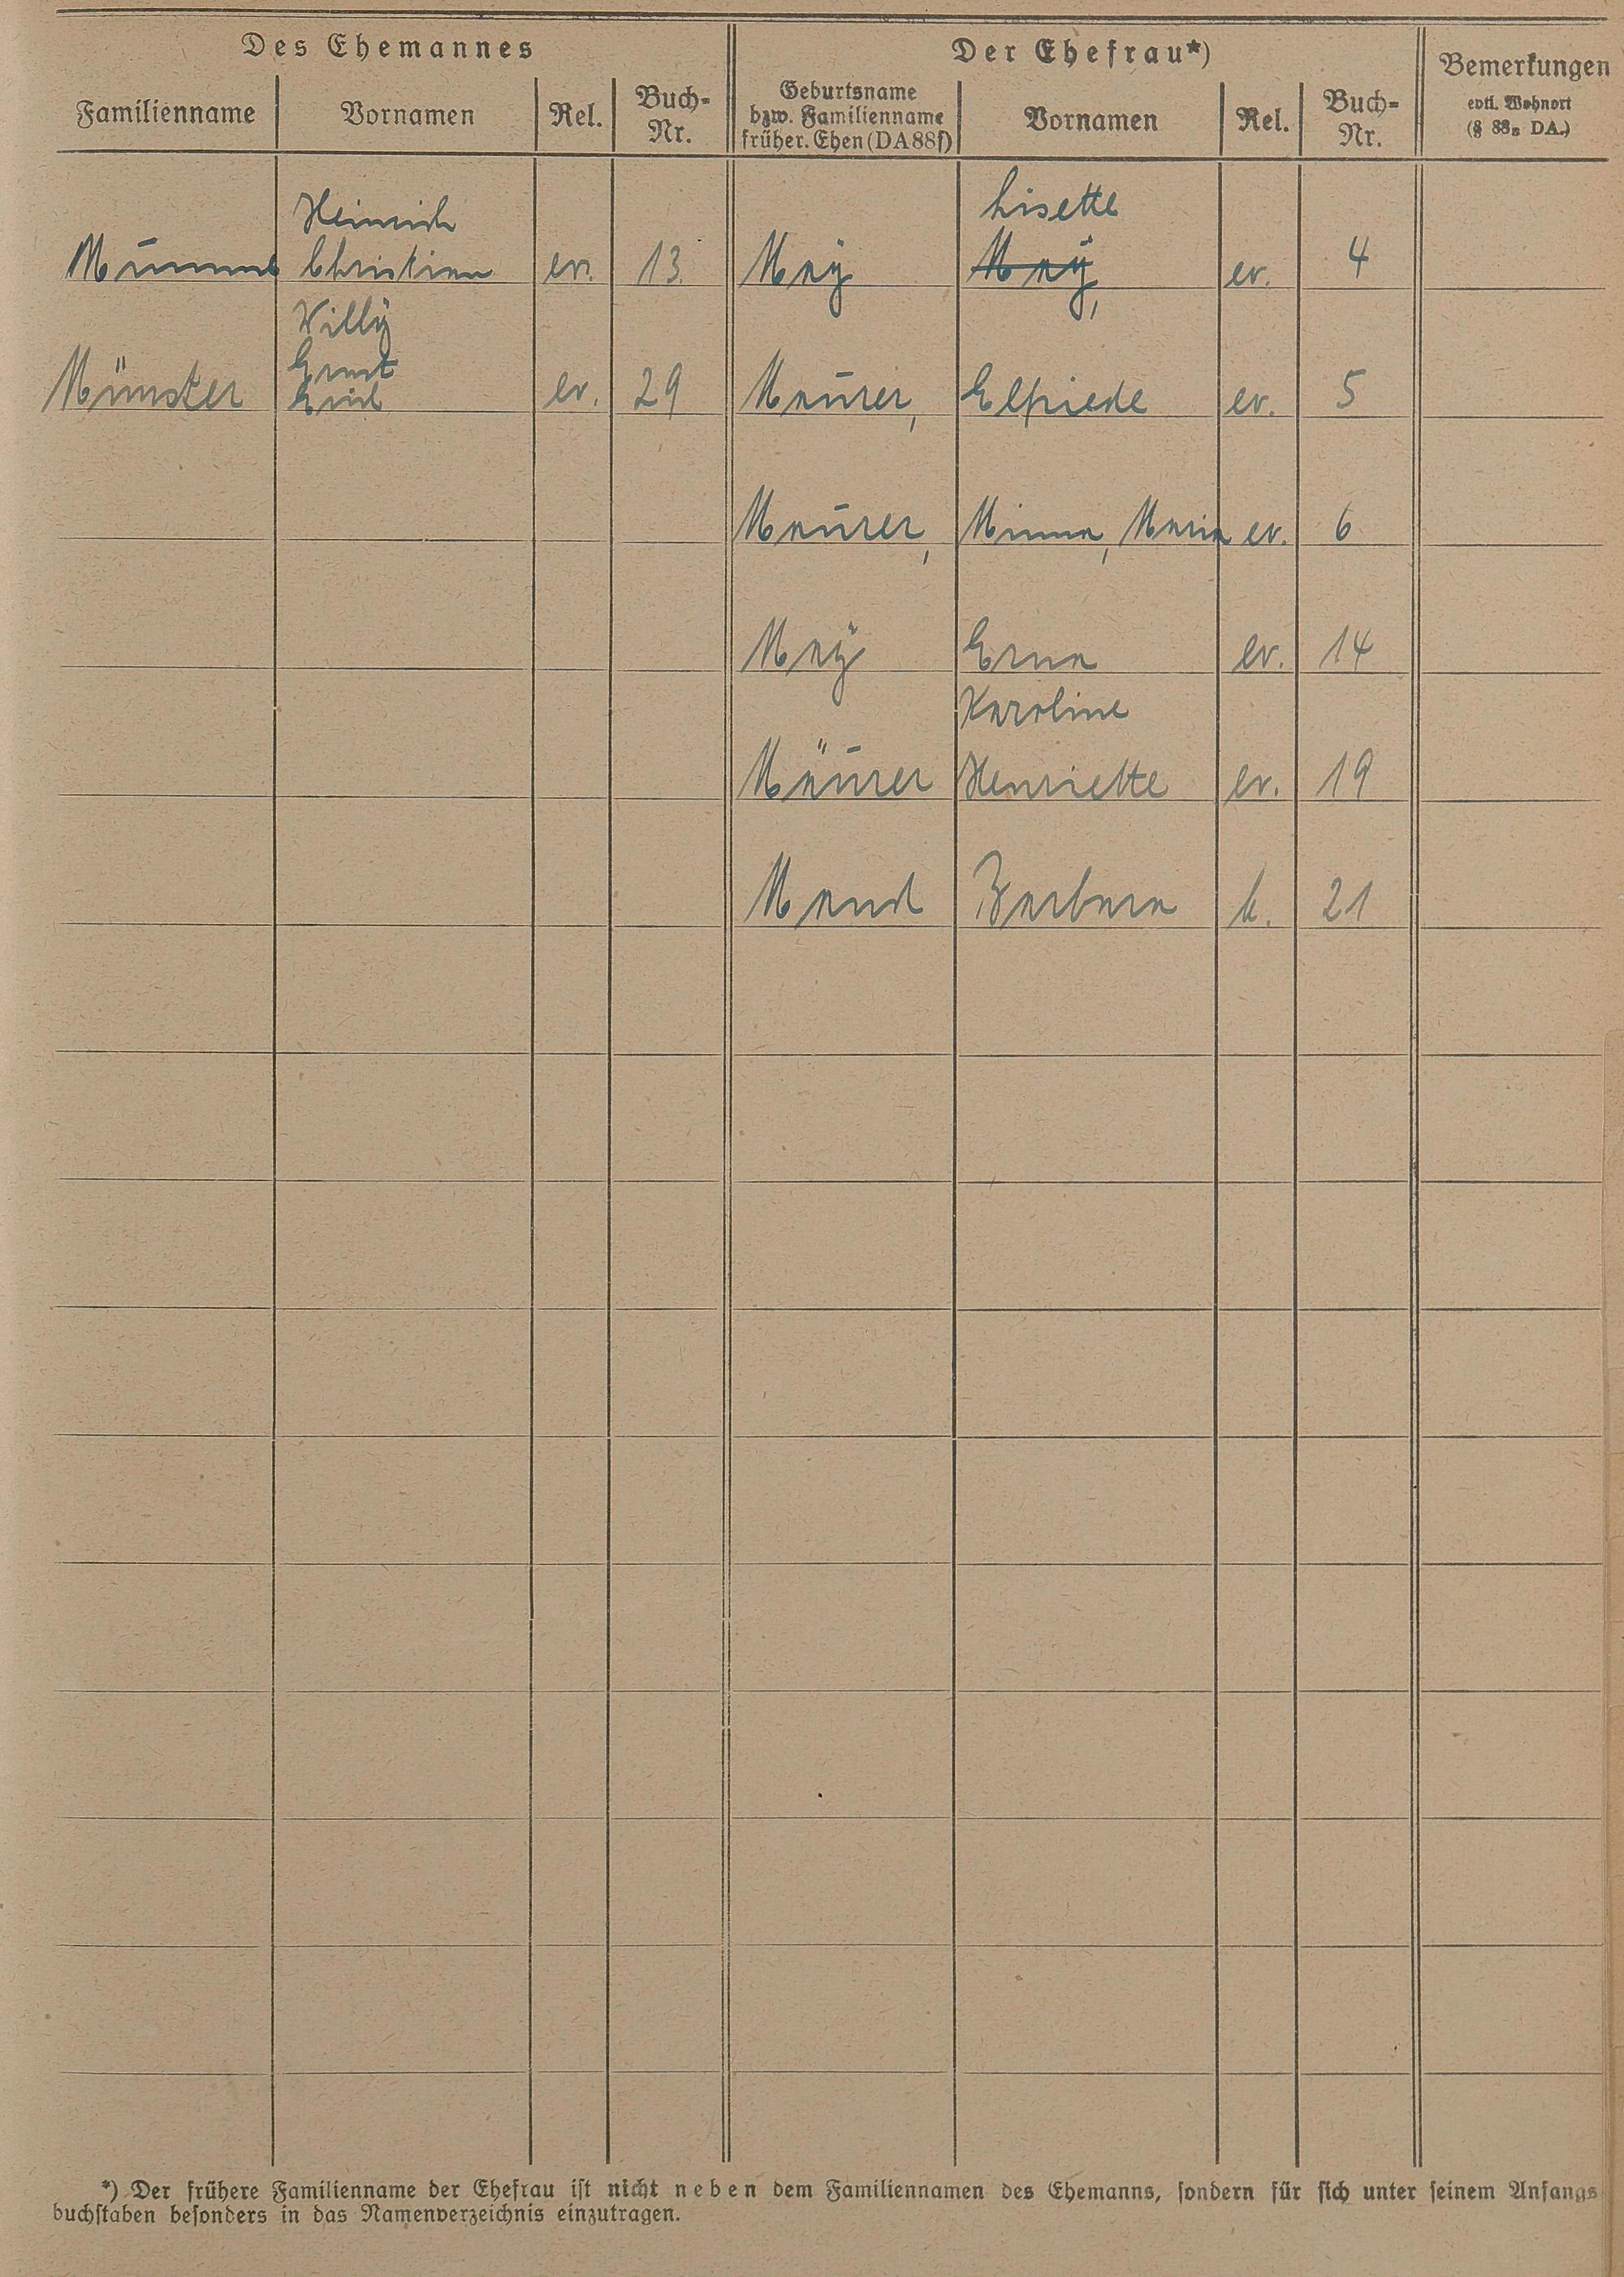 Des Ehemannes
Der Ehefrau*)
Bemerkungen
evtl. Wohnort
(§ 88₅ DA.)
Familienname
Vornamen
Rel.
Buch-
Nr.
Geburtsname
bzw. Familienname
früher. Ehen (DA 88f)
Vornamen
Rel.
Buch-
Nr.
Heinrich
Lisette
Christian ev. 13. Maÿ Maÿ, ev. 4
Willÿ
Ernst
Münster Emil ev. 29 Maurer, Elfriede ev. 5
Maurer, Minna, Maria ev. 6
Maÿ Erna ev. 14
Karoline
Mäurer Henriette ev. 19
Mand Barbara k. 21
*) Der frühere Familienname der Ehefrau ist nicht neben dem Familiennamen des Ehemanns, sondern für sich unter seinem Anfangs
buchstaben besonders in das Namenverzeichnis einzutragen.